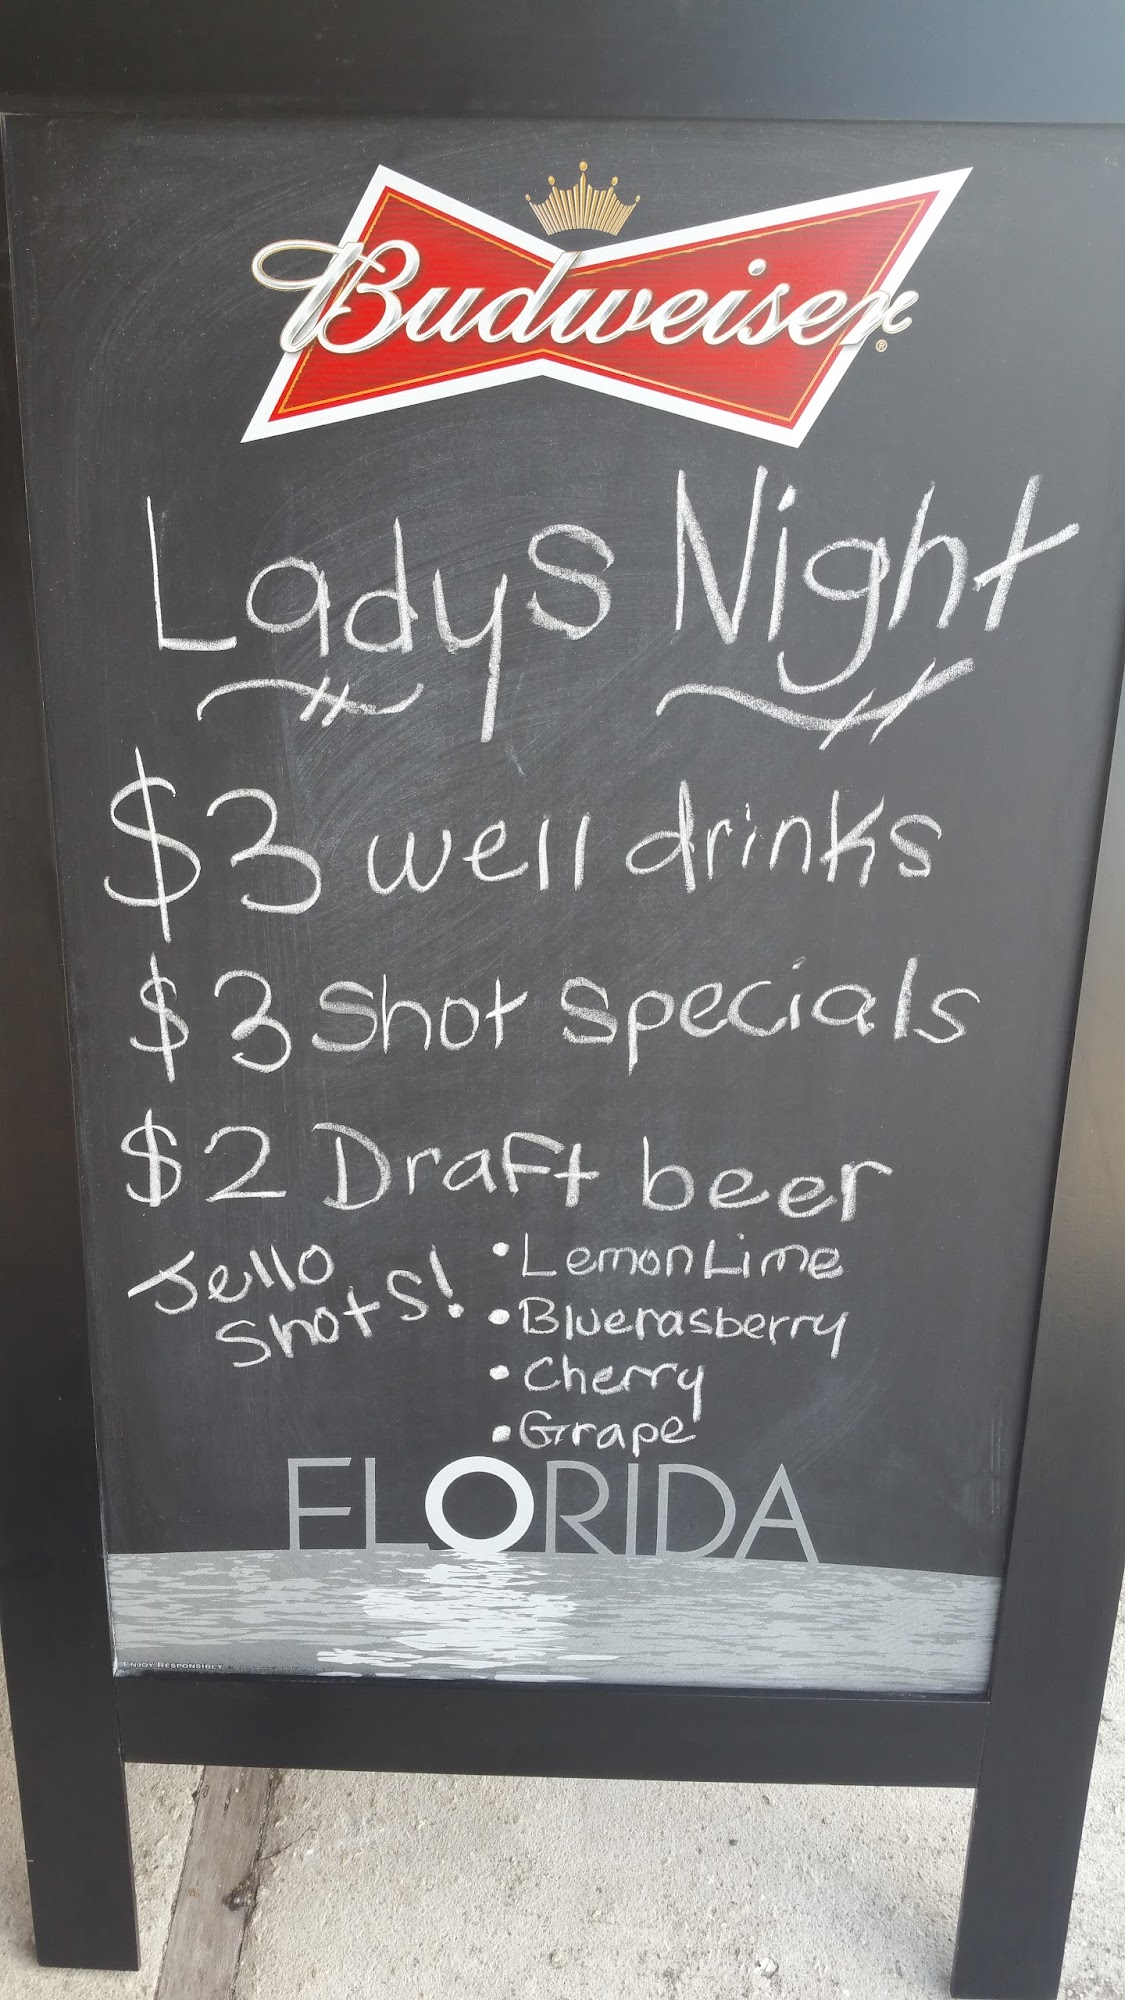 Budweiser
Ladys Night
$3 well drinks
$3 Shot Specials
$2 Draft beer
Jello
Shots!
• Lemon Lime
• Bluerasberry
• Cherry
• Grape
FLORIDA
ENJOY RESPONSIBLY